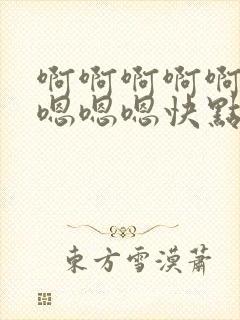 啊啊啊啊啊
嗯嗯嗯快點
東方雪漠蕭